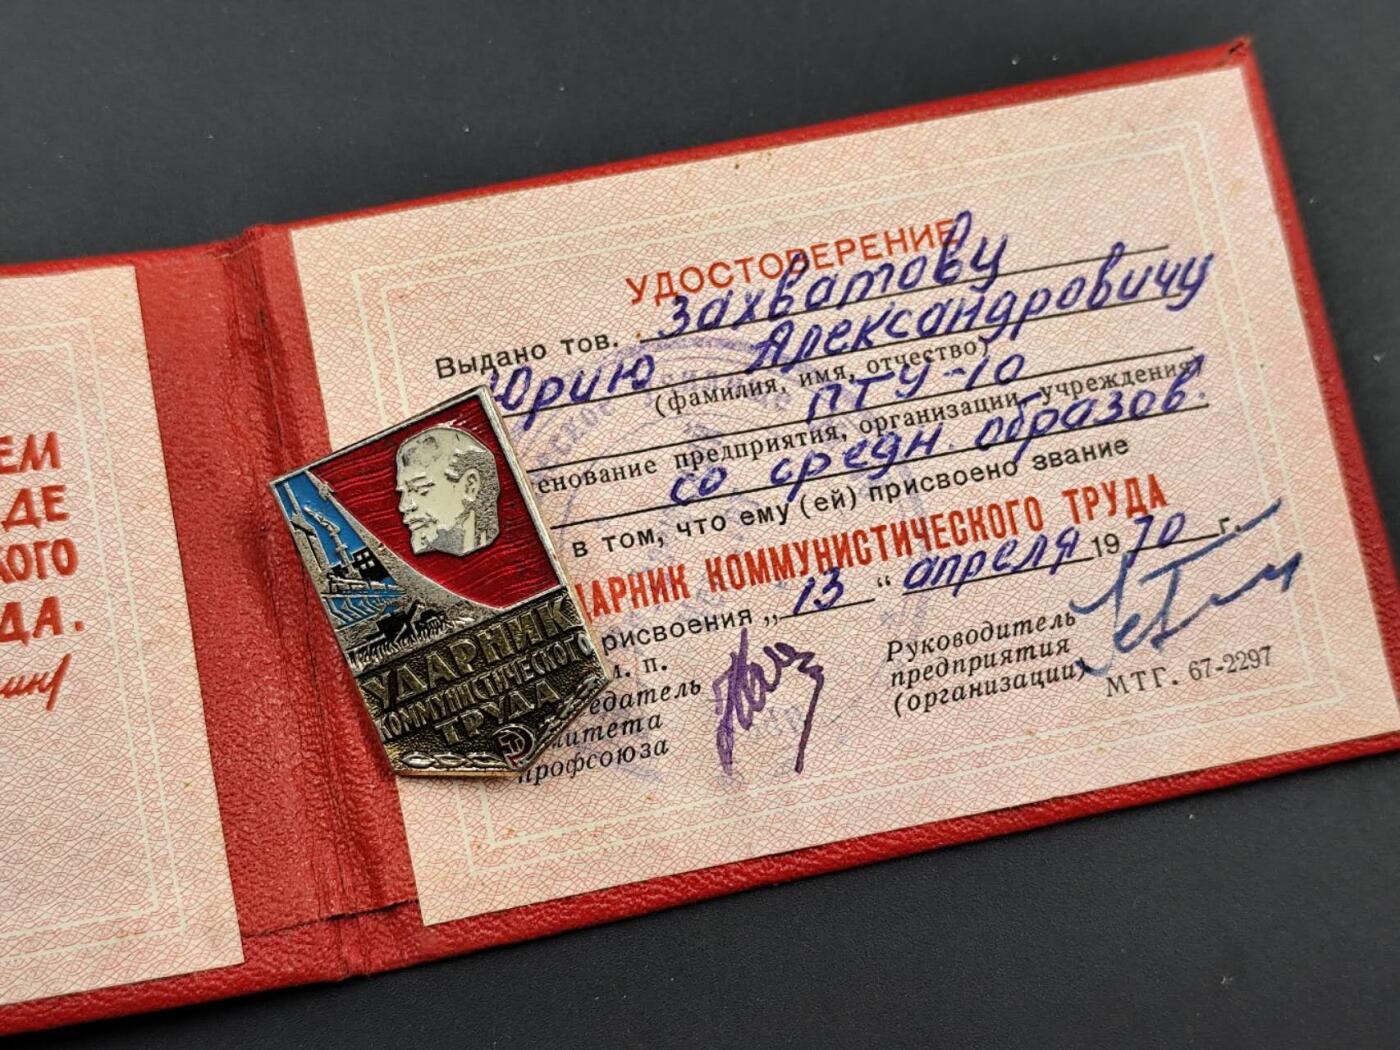 ЕМ
ДЕ
КОГО
ДА.
УДОСТОВЕРЕНИЕ
Выдано тов. Захватову
Юрию Александровичу
(фамилия, имя, отчество)
ПТУ-10
енование предприятия, организации, учреждения)
со средн. образов.
в том, что ему (ей) присвоено звание
ДАРНИК КОММУНИСТИЧЕСКОГО ТРУДА
рисвоения „13“ апреля 1970 г.
м. п.
едатель
митета
профсоюза
Руководитель
предприятия
(организации)
МТГ. 67-2297
УДАРНИК
КОММУНИСТИЧЕСКОГО
ТРУДА